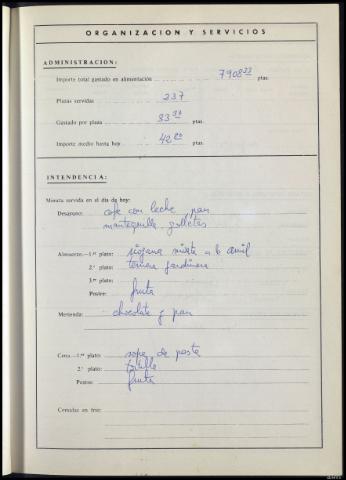 ORGANIZACION Y SERVICIOS
ADMINISTRACION:
Importe total gastado en alimentación 7908 33 ptas.
Plazas servidas 237
Gastado por plaza 33 ptas.
Importe medio hasta hoy 42 ptas.
INTENDENCIA:
Minuta servida en el día de hoy:
Desayuno: cafe con leche pan
mantequilla galletas
Almuerzo.—1.er plato: riojana mixta
2.º plato: ternera jardinera
3.er plato:
Postre: fruta
Merienda: chocolate y pan
Cena.—1.er plato: sopa de pasta
2.º plato: tortilla
Postre: fruta
Comidas en tren: